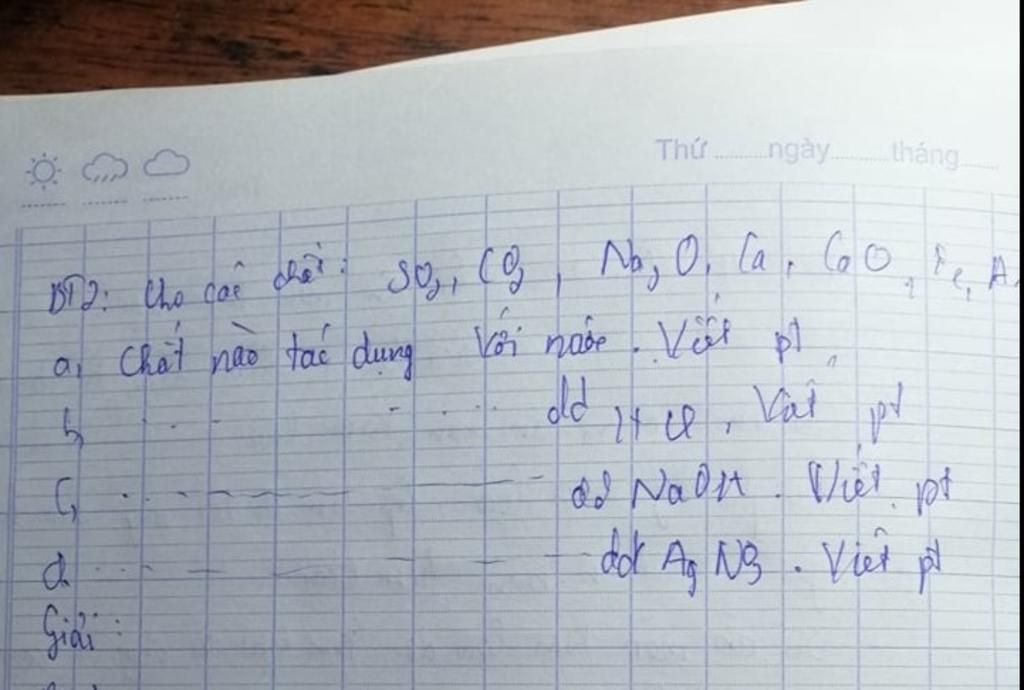 Thứ ........ ngày ........ tháng ......
BT2: Cho các chất: SO2, CO2, Na2O, Ca, CaO, Fe, A
a, Chất nào tác dụng với nước. Viết pt
b, . - - . . . dd HCl, Viết pt
c, . - - - - - dd NaOH. Viết pt
d. . . . - - - - dd AgNO3. Viết pt
Giải: